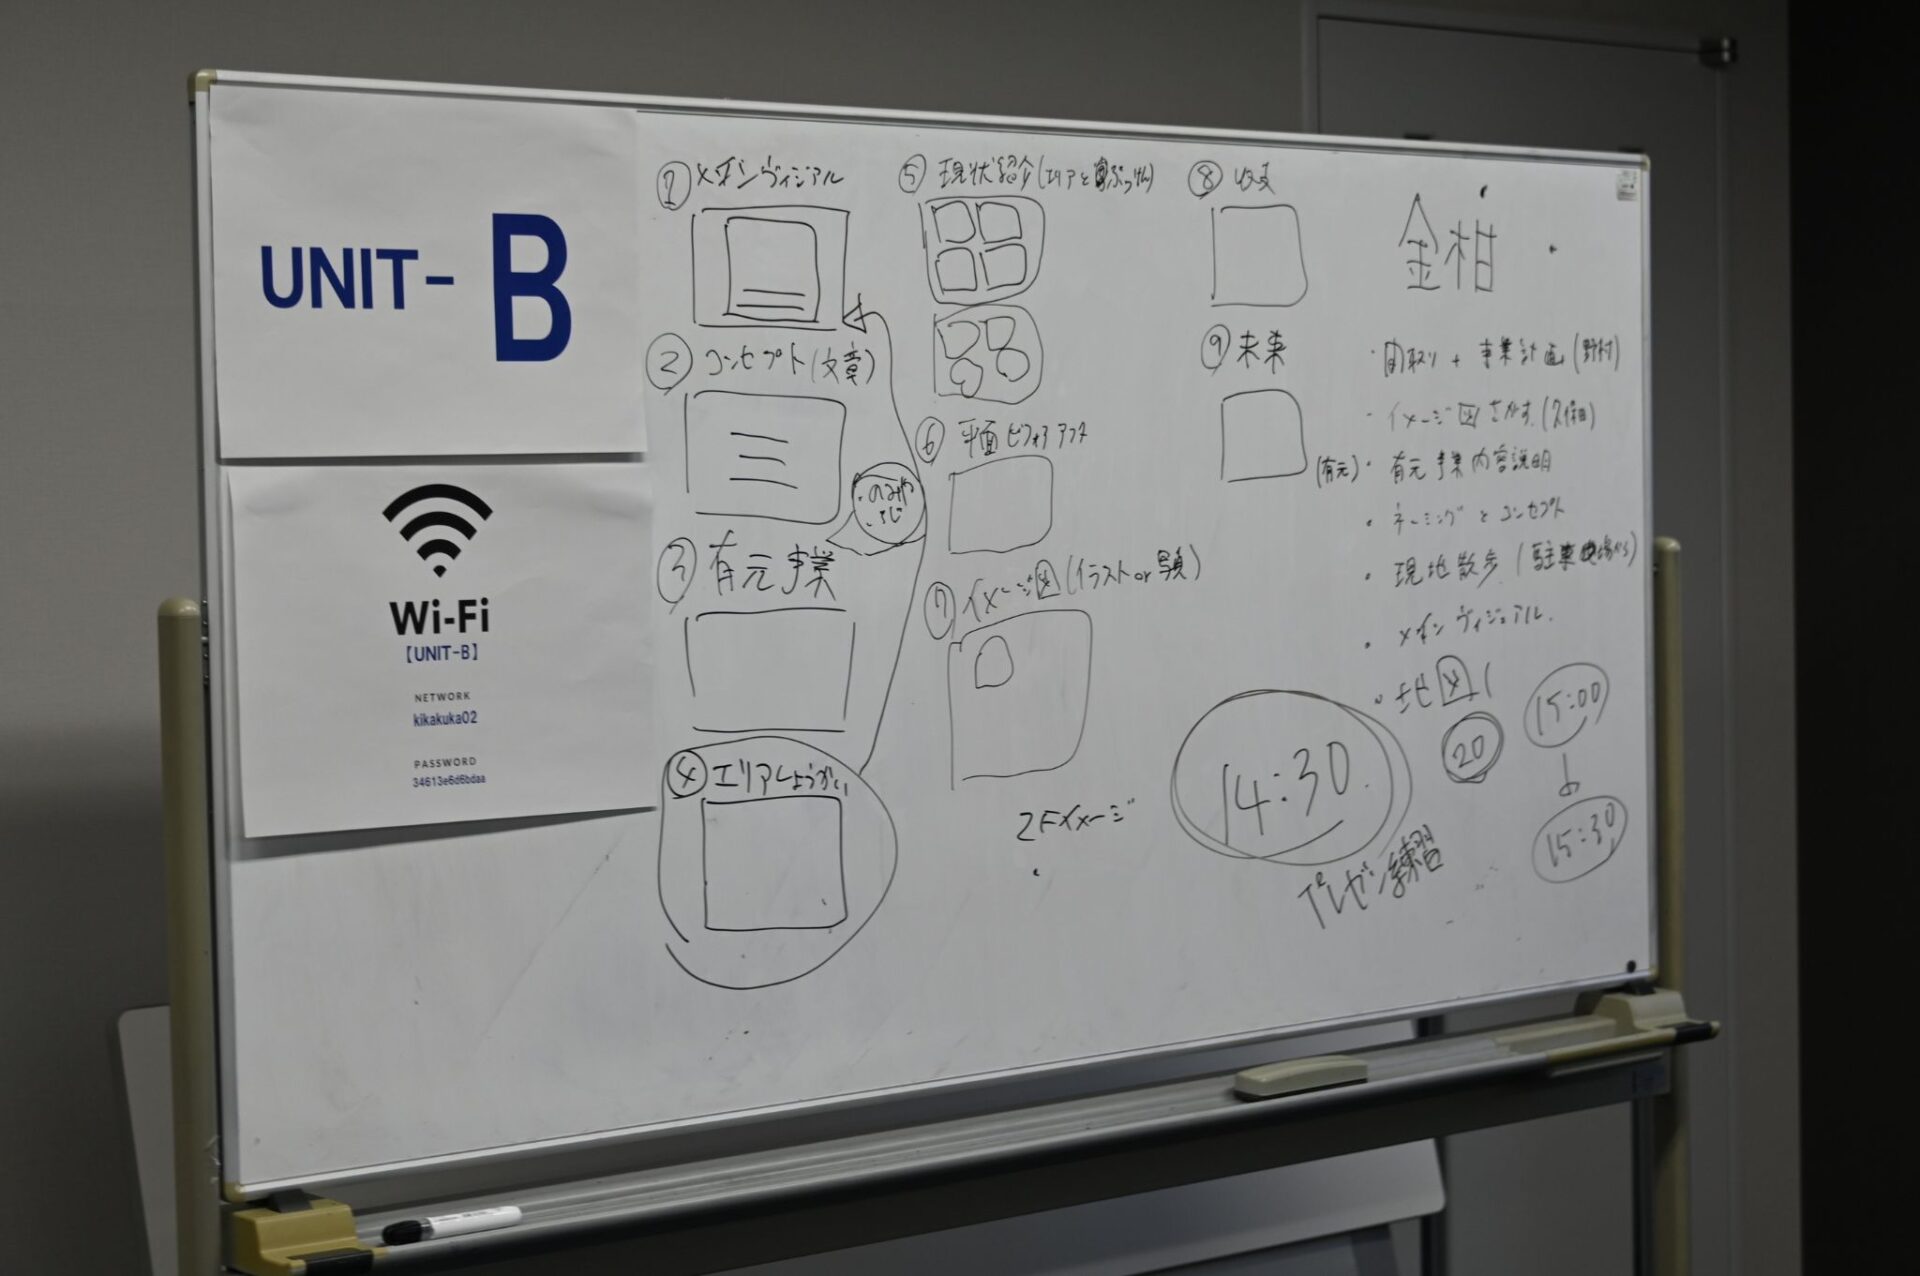 UNIT- B
Wi-Fi
【UNIT-B】
NETWORK
kikakuka02
PASSWORD
34613e6d6bdaa
① メインヴィジアル
② コンセプト(文章)
・のみや
③ 有元事業
④ エリアしょうかい
⑤ 現状紹介(エリアとぶっけん)
⑥ 平面ビフォアアフタ
⑦ イメージ図(イラストor写真)
2Fイメージ
⑧ 収支
⑨ 未来
金柑
・間取り + 事業計画(野村)
・イメージ図さがす.(久保田)
(有元)・有元事業内容説明
・ネーミングとコンセプト
・現地散歩(駐車場から)
・メインヴィジュアル.
・地図
20
14:30.
プレゼン練習
15:00
15:30